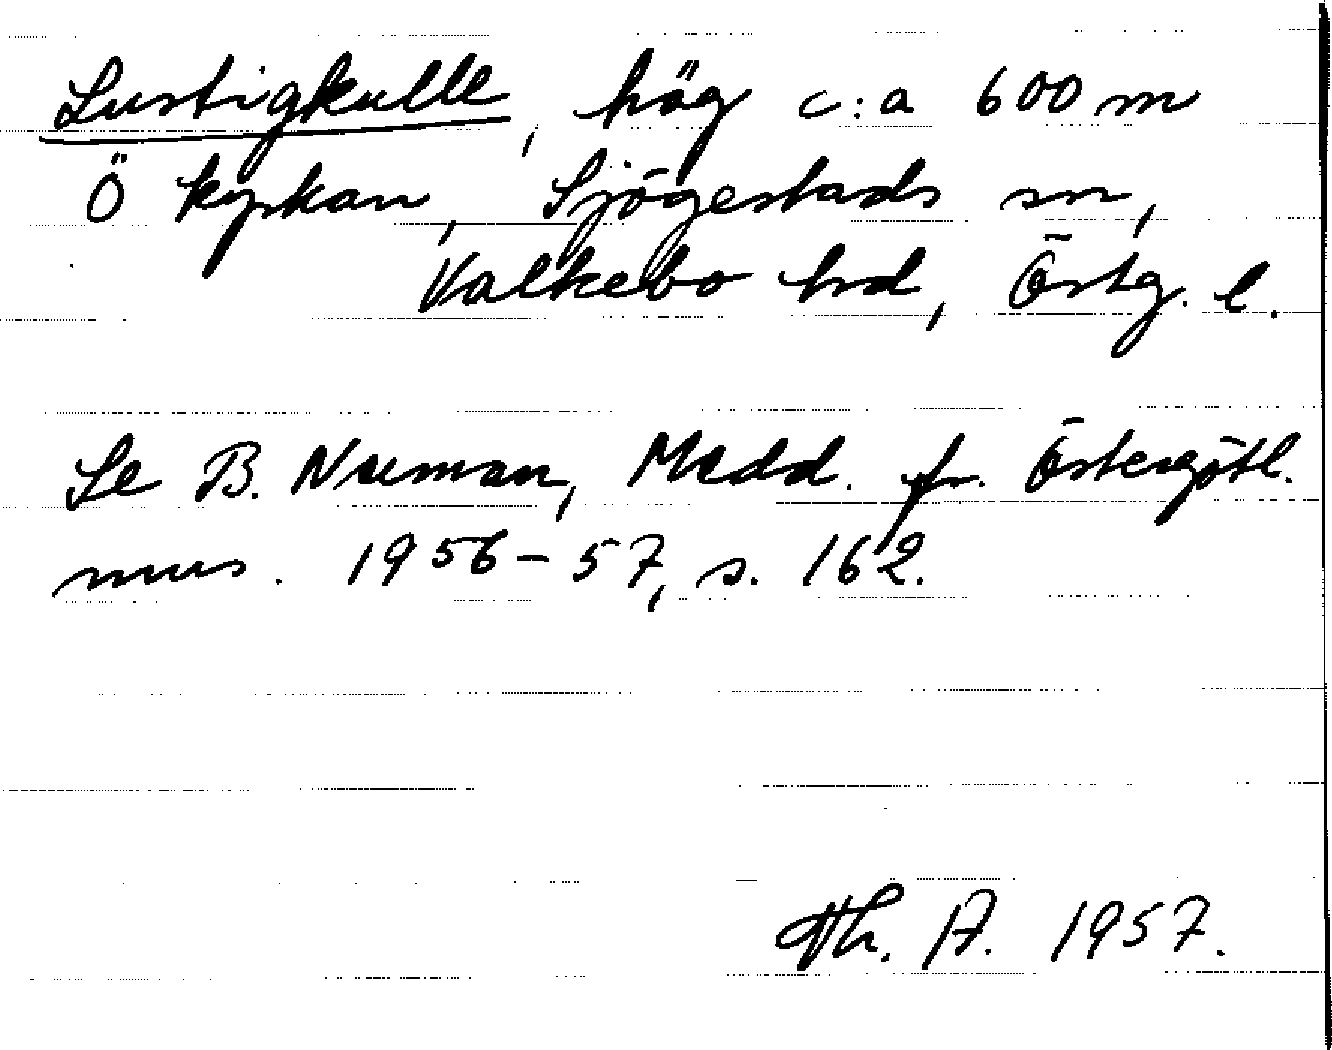 Lustigkulle, hög c:a 600 m
Ö kyrkan, Sjögestads sn,
Valkebo hd, Östg. l.
Se B. Nerman, Medd. fr. Östergötl.
mus. 1956-57, s. 162.
Th. A. 1957.